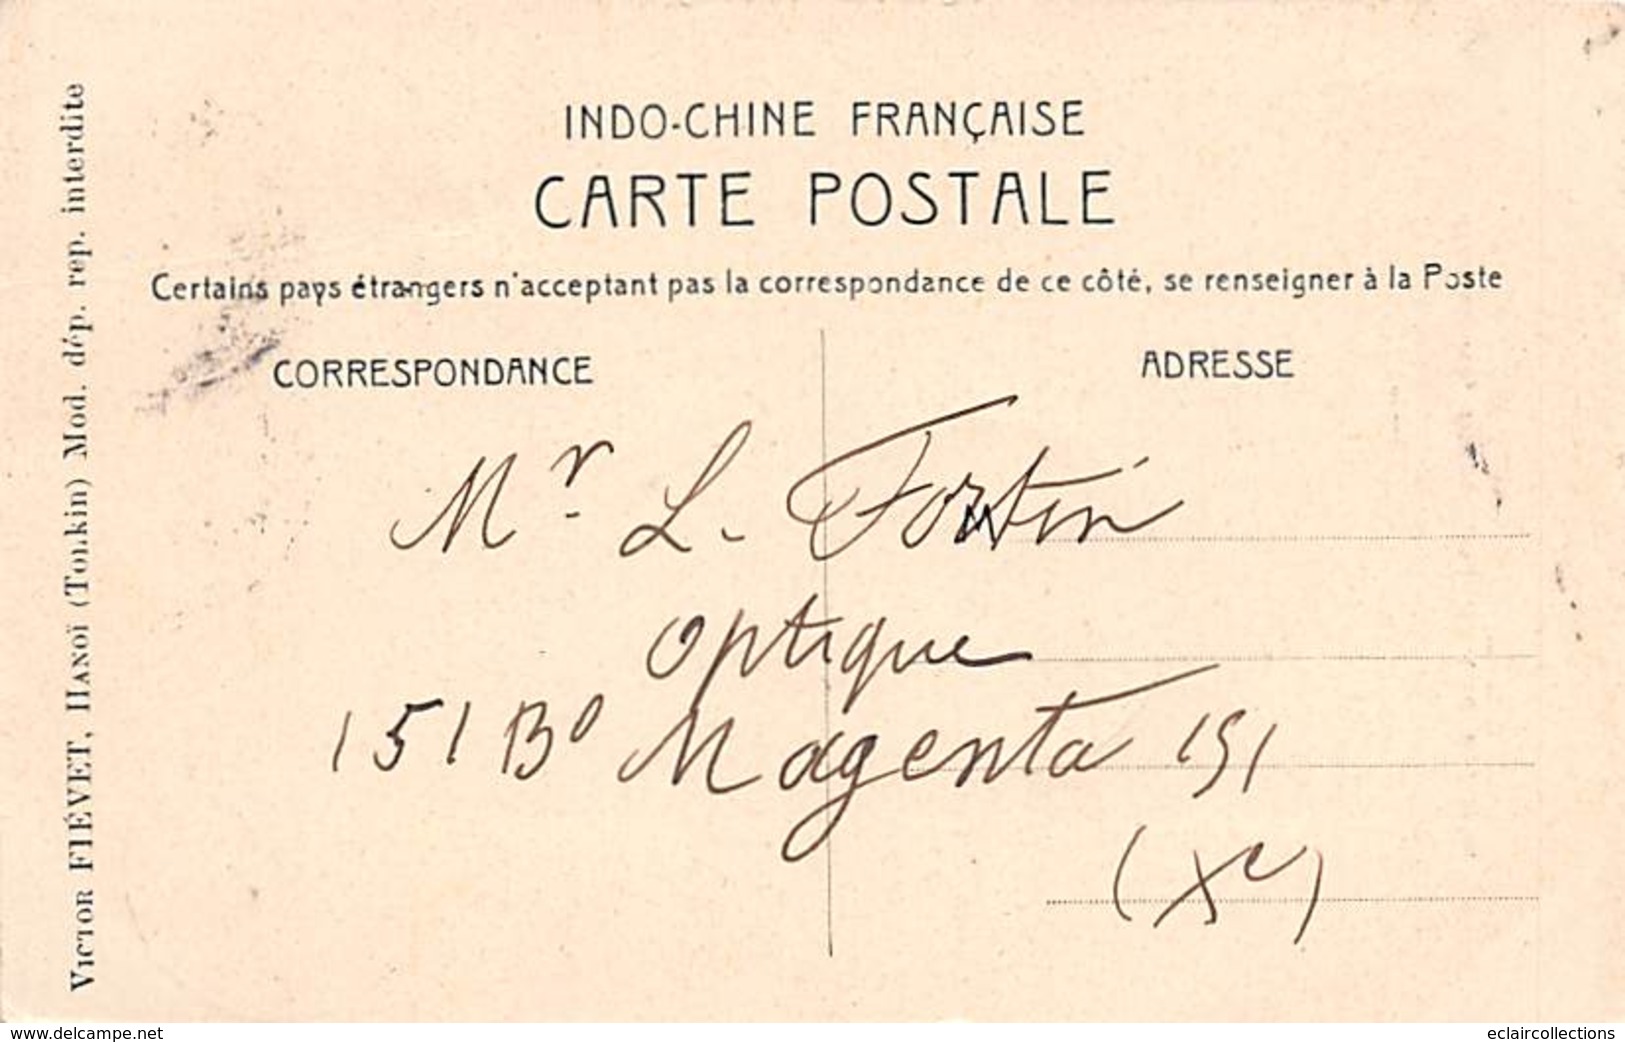 INDO-CHINE FRANÇAISE
CARTE POSTALE
Certains pays étrangers n'acceptant pas la correspondance de ce côté, se renseigner à la Poste
CORRESPONDANCE
ADRESSE
Mr L. Fortin
Optique
151 Bd Magenta 151
(Xe)
VICTOR FIÉVET, HANOÏ (Tonkin) Mod. dép. rep. interdite
www.delcampe.net
eclaircollections